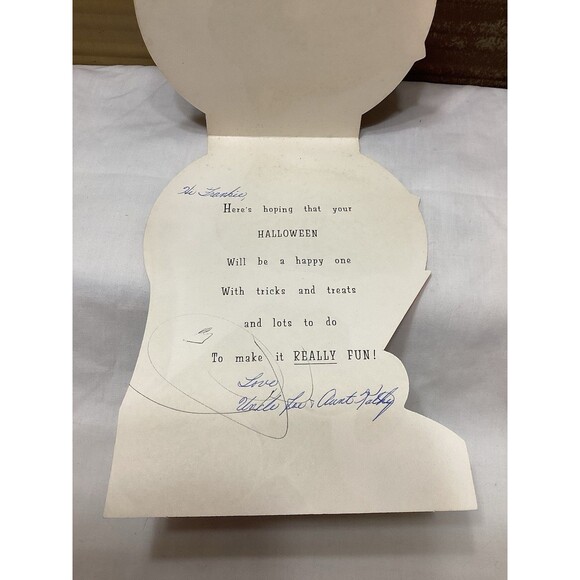 Hi Frankie,
Here's hoping that your
HALLOWEEN
Will be a happy one
With tricks and treats
and lots to do
To make it REALLY FUN!
Love
Uncle Joe & Aunt Kathy